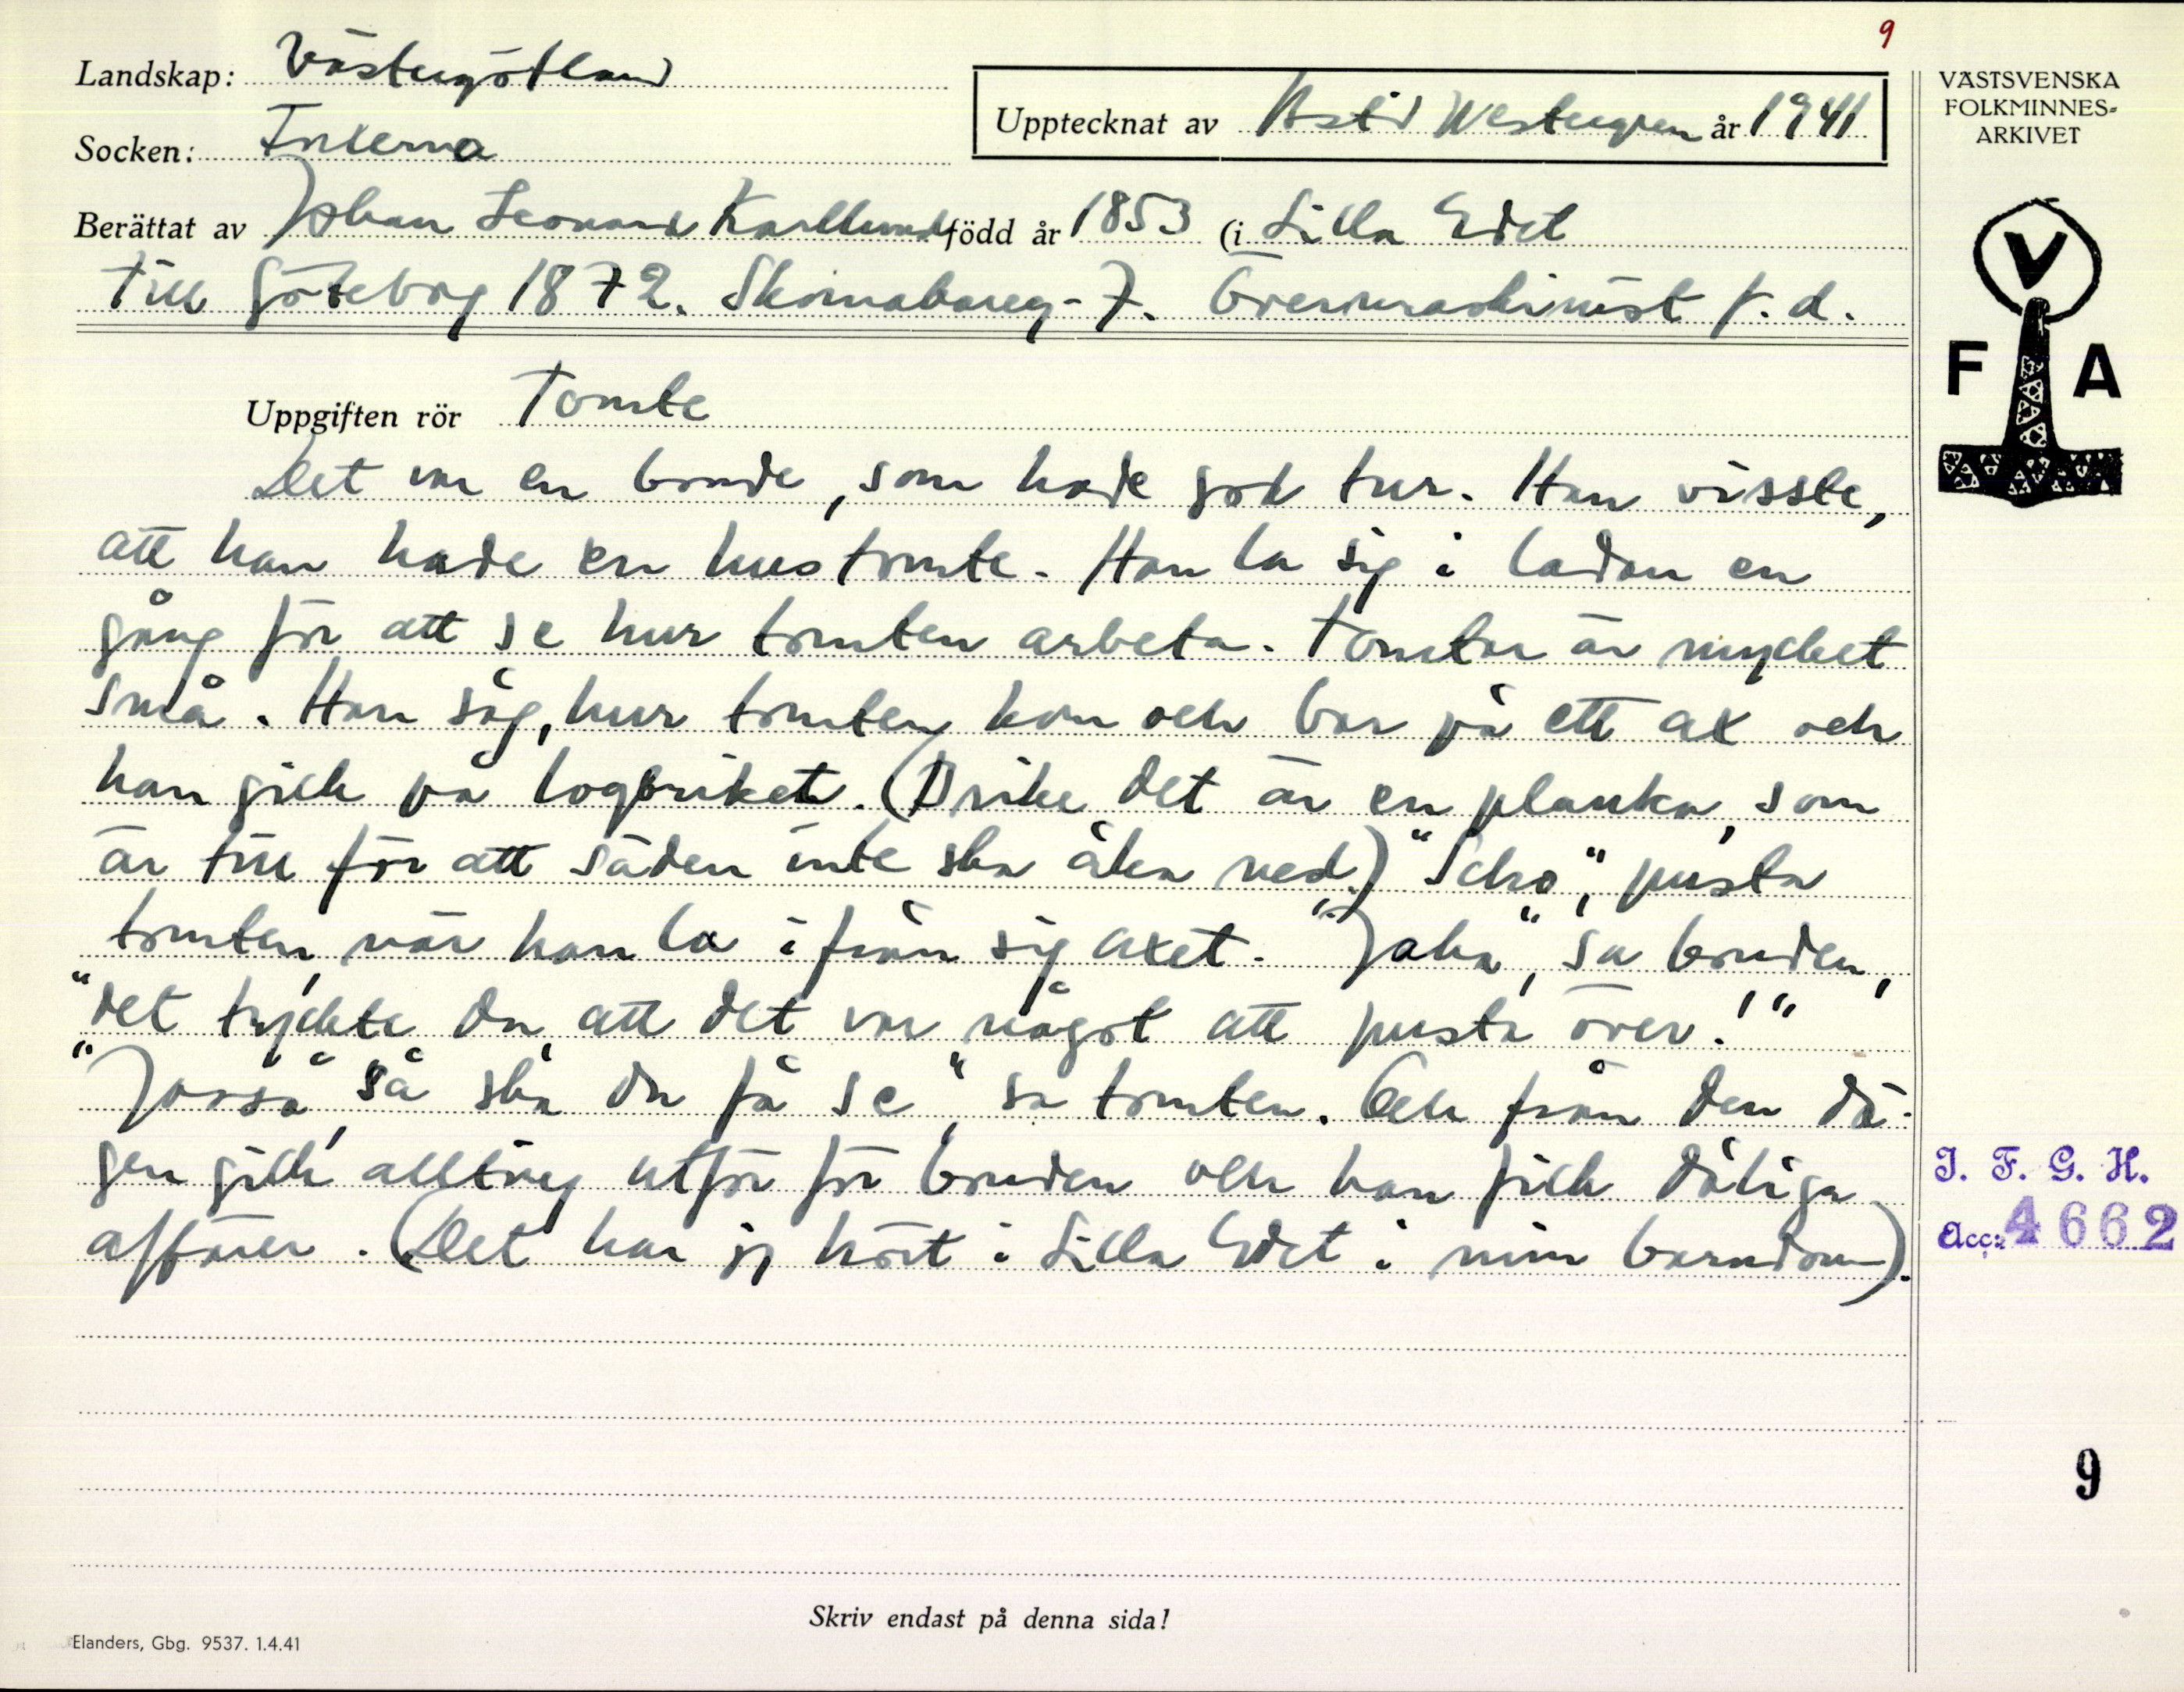 9
Landskap: Västergötland
Socken: Fuxerna
Upptecknat av Astrid Westergren år 1941
Berättat av Johan Leonard Karllund född år 1853 (i Lilla Edet
till Göteborg 1872. Skomakareg. 7. Övermaskinist f.d.
Uppgiften rör Tomte
Det var en bonde, som hade god tur. Han visste,
att han hade en hustomte. Han la sig i ladan en
gång för att se hur tomten arbeta. Tomtar är mycket
små. Han såg, hur tomten kom och bar på ett ax och
han gick på logbriket. (Brike det är en planka, som
är till för att säden inte ska åka ned.) "Scho", pusta
tomten, när han la ifrån sig axet. "Jaha", sa bonden,
"det tyckte du, att det var något att pusta över!"
"Jorså, så ska du få se", sa tomten. Och från den da-
gen gick allting utför för bonden och han fick dåliga
affärer. (Det har jag hört i Lilla Edet i min barndom).
VÄSTSVENSKA
FOLKMINNES-
ARKIVET
V
F A
I. F. G. H.
Acc: 4662
9
Skriv endast på denna sida!
Elanders, Gbg. 9537. 1.4.41